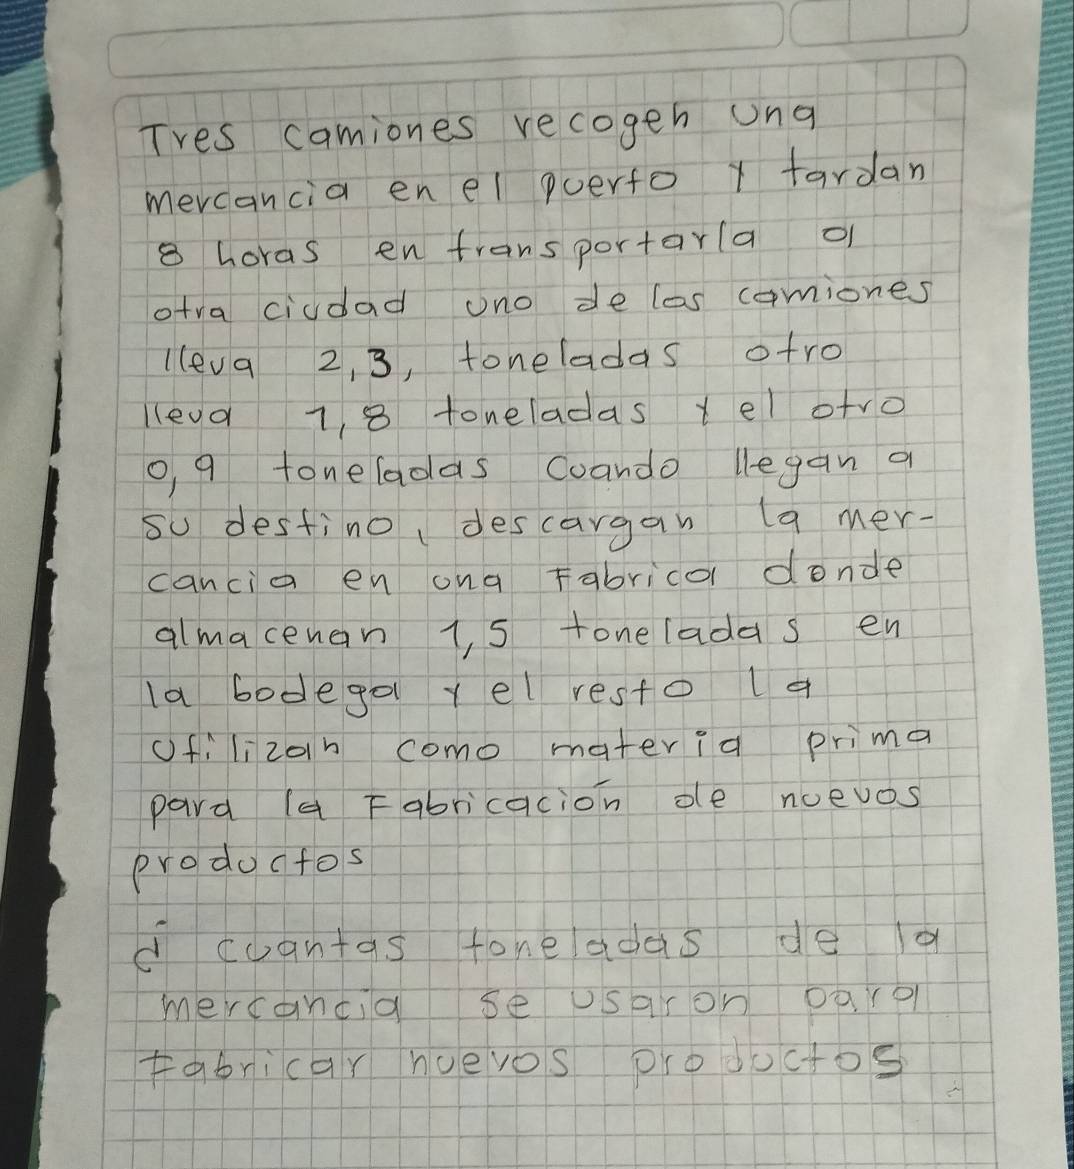 Tres camiones recogen una
mercancia en el puerto y tardan
8 horas en transportarla a
otra ciudad uno de los camiones
lleva 2,3, toneladas otro
lleva 1,8 toneladas y el otro
0,9 toneladas cuando llegan a
su destino, descargan la mer-
cancia en una Fabrica donde
almacenan 1,5 toneladas en
la bodega y el resto la
utilizan como materia prima
para la Fabricación de nuevos
productos
¿ cuantas toneladas de la
mercancia se usaron para
Fabricar nuevos productos